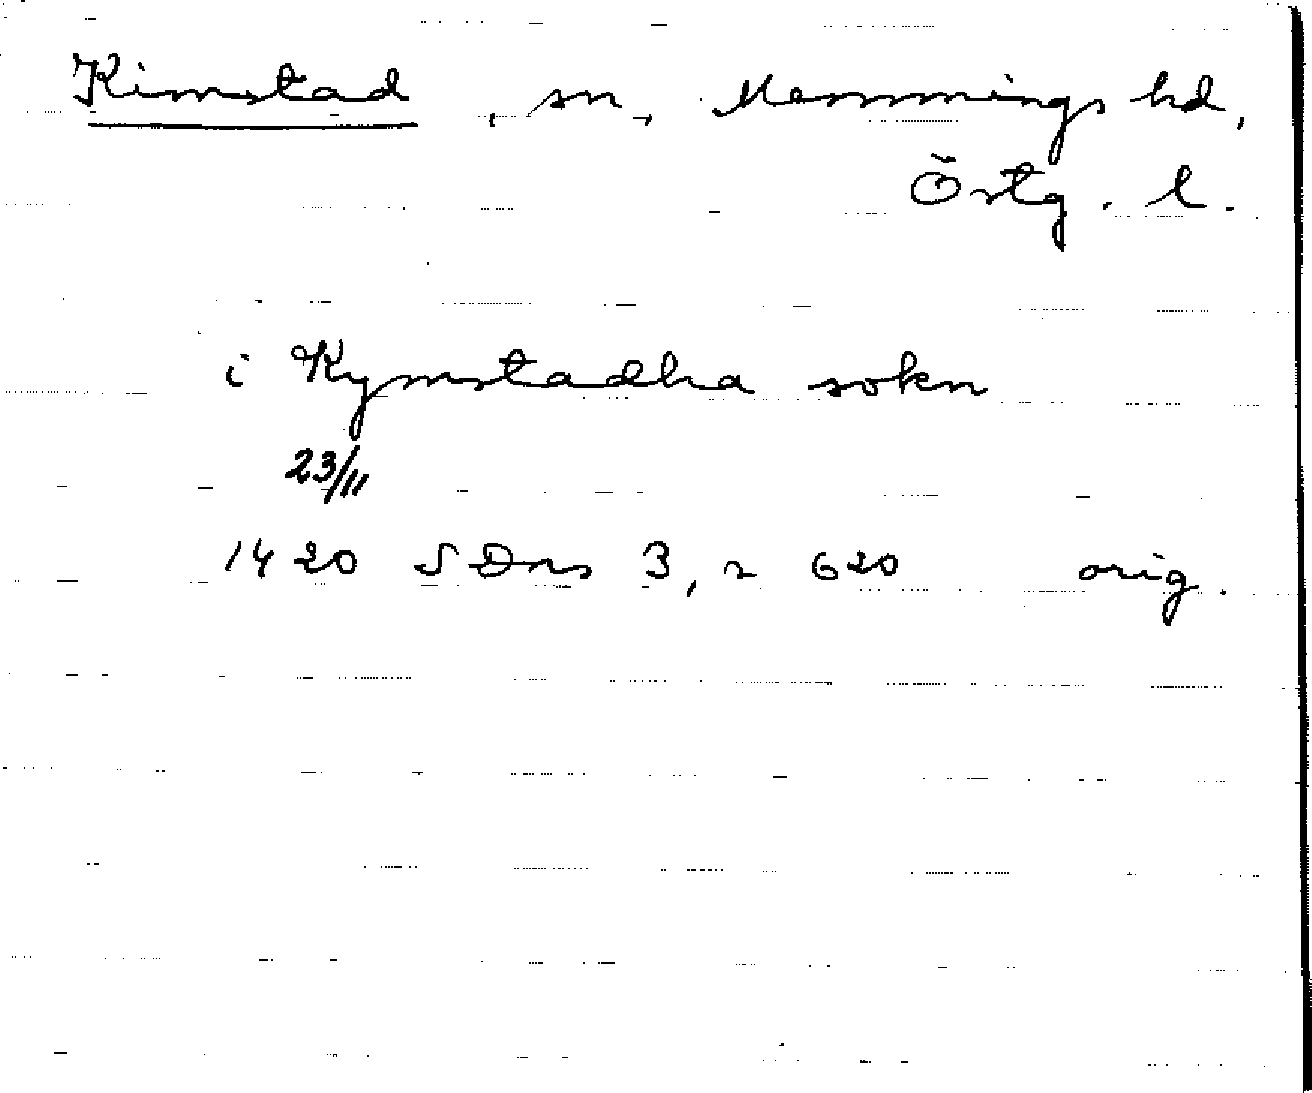 Kimstad, sn, Memmings hd,
Östg. l.
i Kymstadha sokn
23/11
1420 SDns 3, s 620 orig.